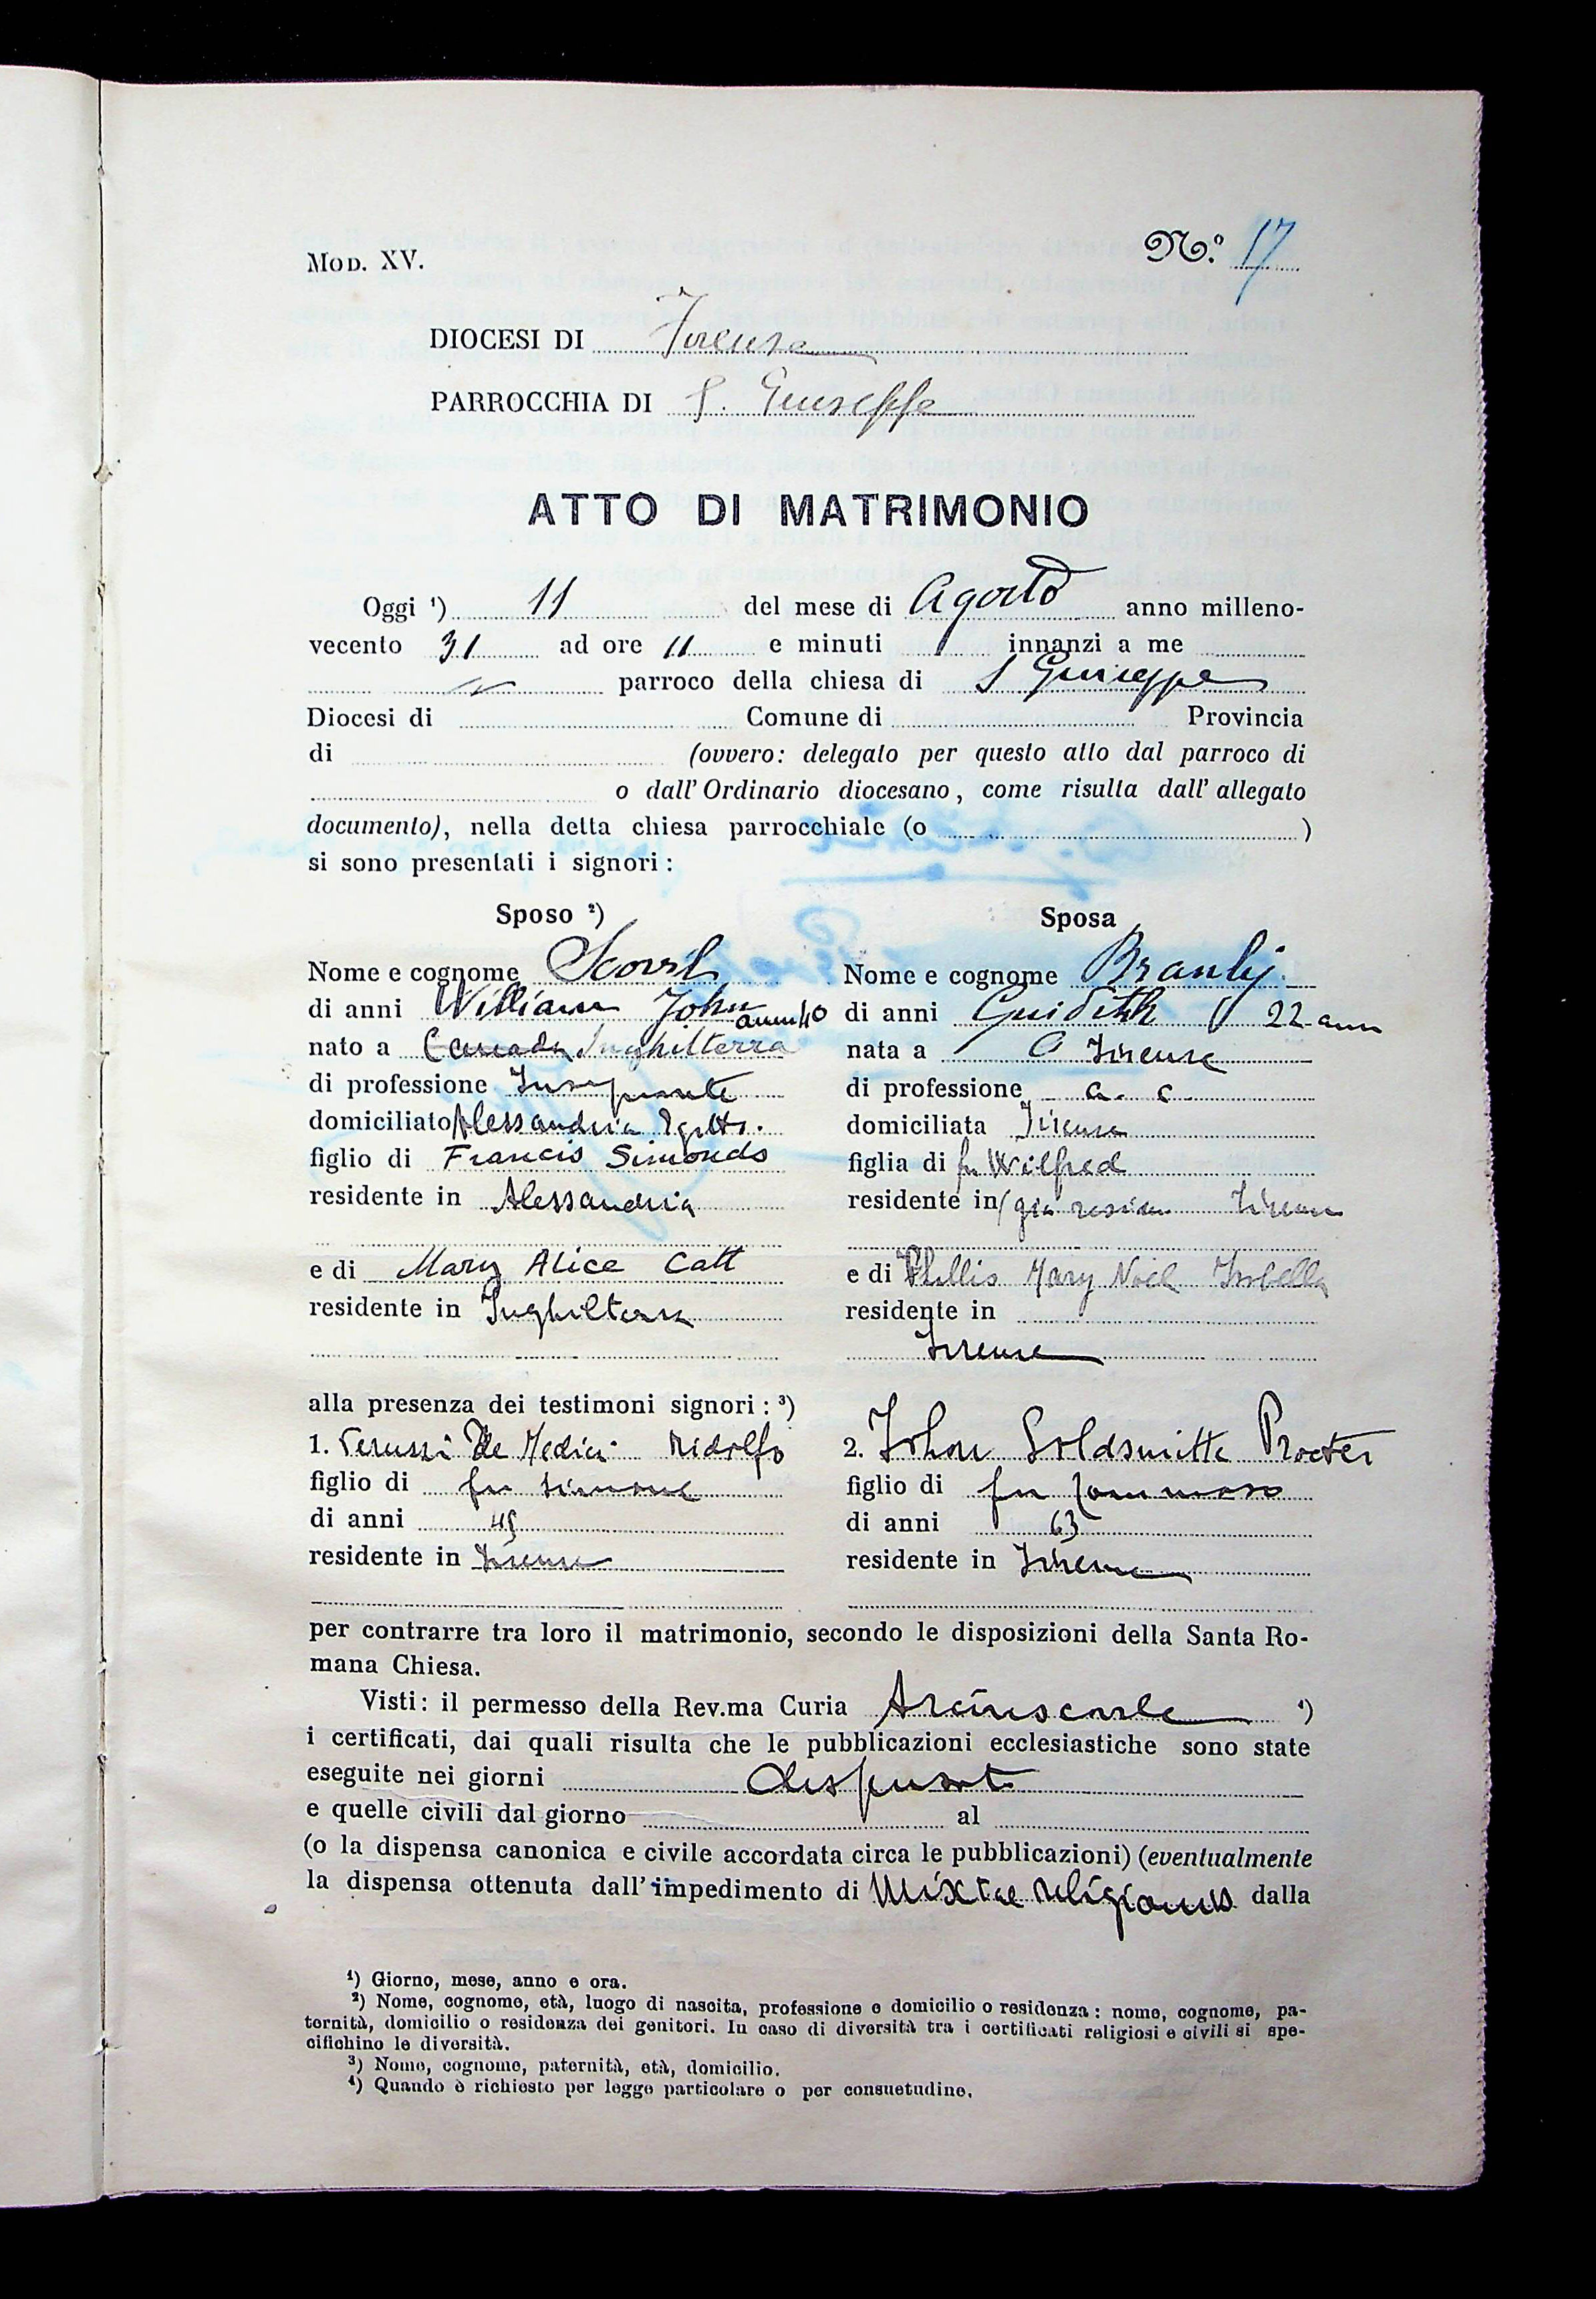 Mod. XV.
N.º 17
DIOCESI DI Firenze
PARROCCHIA DI S. Giuseppe
ATTO DI MATRIMONIO
Oggi ¹) 11 del mese di Agosto anno milleno-
vecento 31 ad ore 11 e minuti innanzi a me
parroco della chiesa di S Giuseppe
Diocesi di Comune di Provincia
di (ovvero: delegato per questo atto dal parroco di
o dall'Ordinario diocesano, come risulta dall'allegato
documento), nella detta chiesa parrocchiale (o )
si sono presentati i signori:
Sposo ²)
Nome e cognome
di anni William John anni 40
nato a Inghilterra
di professione Insegnante
domiciliato Alessandria Egitto.
figlio di Francis Simonds
residente in Alessandria
e di Mary Alice Catt
residente in Inghilterra
Sposa
Nome e cognome
di anni Guidith 22 anni
nata a Firenze
di professione a. c.
domiciliata Firenze
figlia di fu Wilfred
residente in (già Firenze
e di Phillis Mary Noel Isabella
residente in
Firenze
alla presenza dei testimoni signori: ³)
1. Peruzzi De Medici Ridolfo
figlio di fu Simone
di anni 45
residente in Firenze
2. John Goldsmith Procter
figlio di fu Tommaso
di anni 63
residente in Firenze
per contrarre tra loro il matrimonio, secondo le disposizioni della Santa Ro-
mana Chiesa.
Visti: il permesso della Rev.ma Curia Arcivescovile ⁴)
i certificati, dai quali risulta che le pubblicazioni ecclesiastiche sono state
eseguite nei giorni dispensati
e quelle civili dal giorno al
(o la dispensa canonica e civile accordata circa le pubblicazioni) (eventualmente
la dispensa ottenuta dall'impedimento di Mixtae religionis dalla
¹) Giorno, mese, anno e ora.
²) Nome, cognome, età, luogo di nascita, professione e domicilio o residenza: nome, cognome, pa-
ternità, domicilio o residenza dei genitori. In caso di diversità tra i certificati religiosi e civili si spe-
cifichino le diversità.
³) Nome, cognome, paternità, età, domicilio.
⁴) Quando è richiesto per legge particolare o per consuetudine.